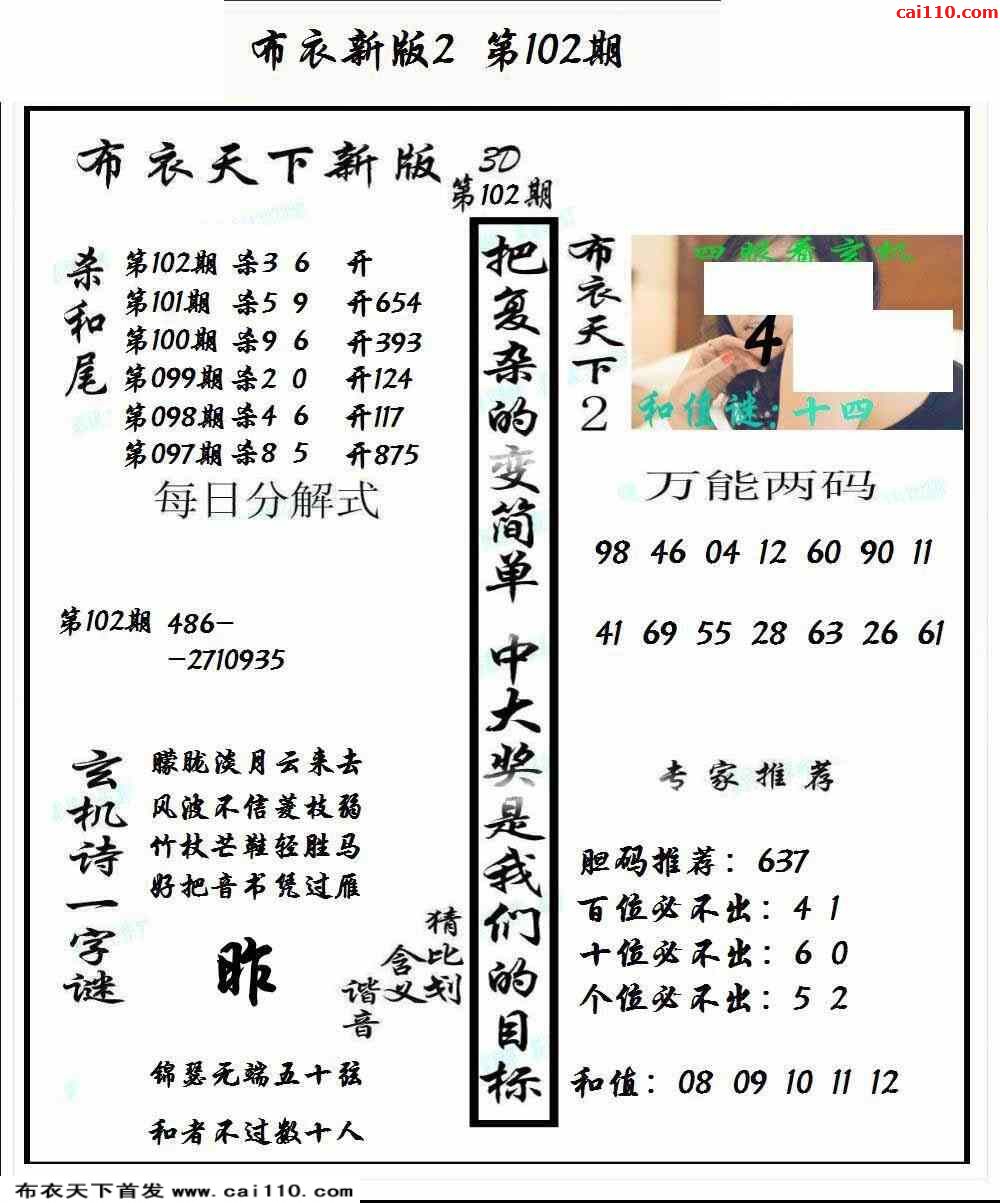 cai110.com
布衣新版2 第102期
布衣天下新版
3D
第102期
杀和尾
第102期 杀3 6 开
第101期 杀5 9 开654
第100期 杀9 6 开393
第099期 杀2 0 开124
第098期 杀4 6 开117
第097期 杀8 5 开875
每日分解式
第102期 486-
-2710935
玄机诗一字谜
朦胧淡月云来去
风波不信菱枝弱
竹杖芒鞋轻胜马
好把音书凭过雁
昨
猜比划
含义
谐音
锦瑟无端五十弦
和者不过数十人
把复杂的变简单 中大奖是我们的目标
布衣天下2
四眼看玄机
4
和值谜:十四
万能两码
98 46 04 12 60 90 11
41 69 55 28 63 26 61
专家推荐
胆码推荐：637
百位必不出：4 1
十位必不出：6 0
个位必不出：5 2
和值：08 09 10 11 12
布衣天下首发 www.cai110.com